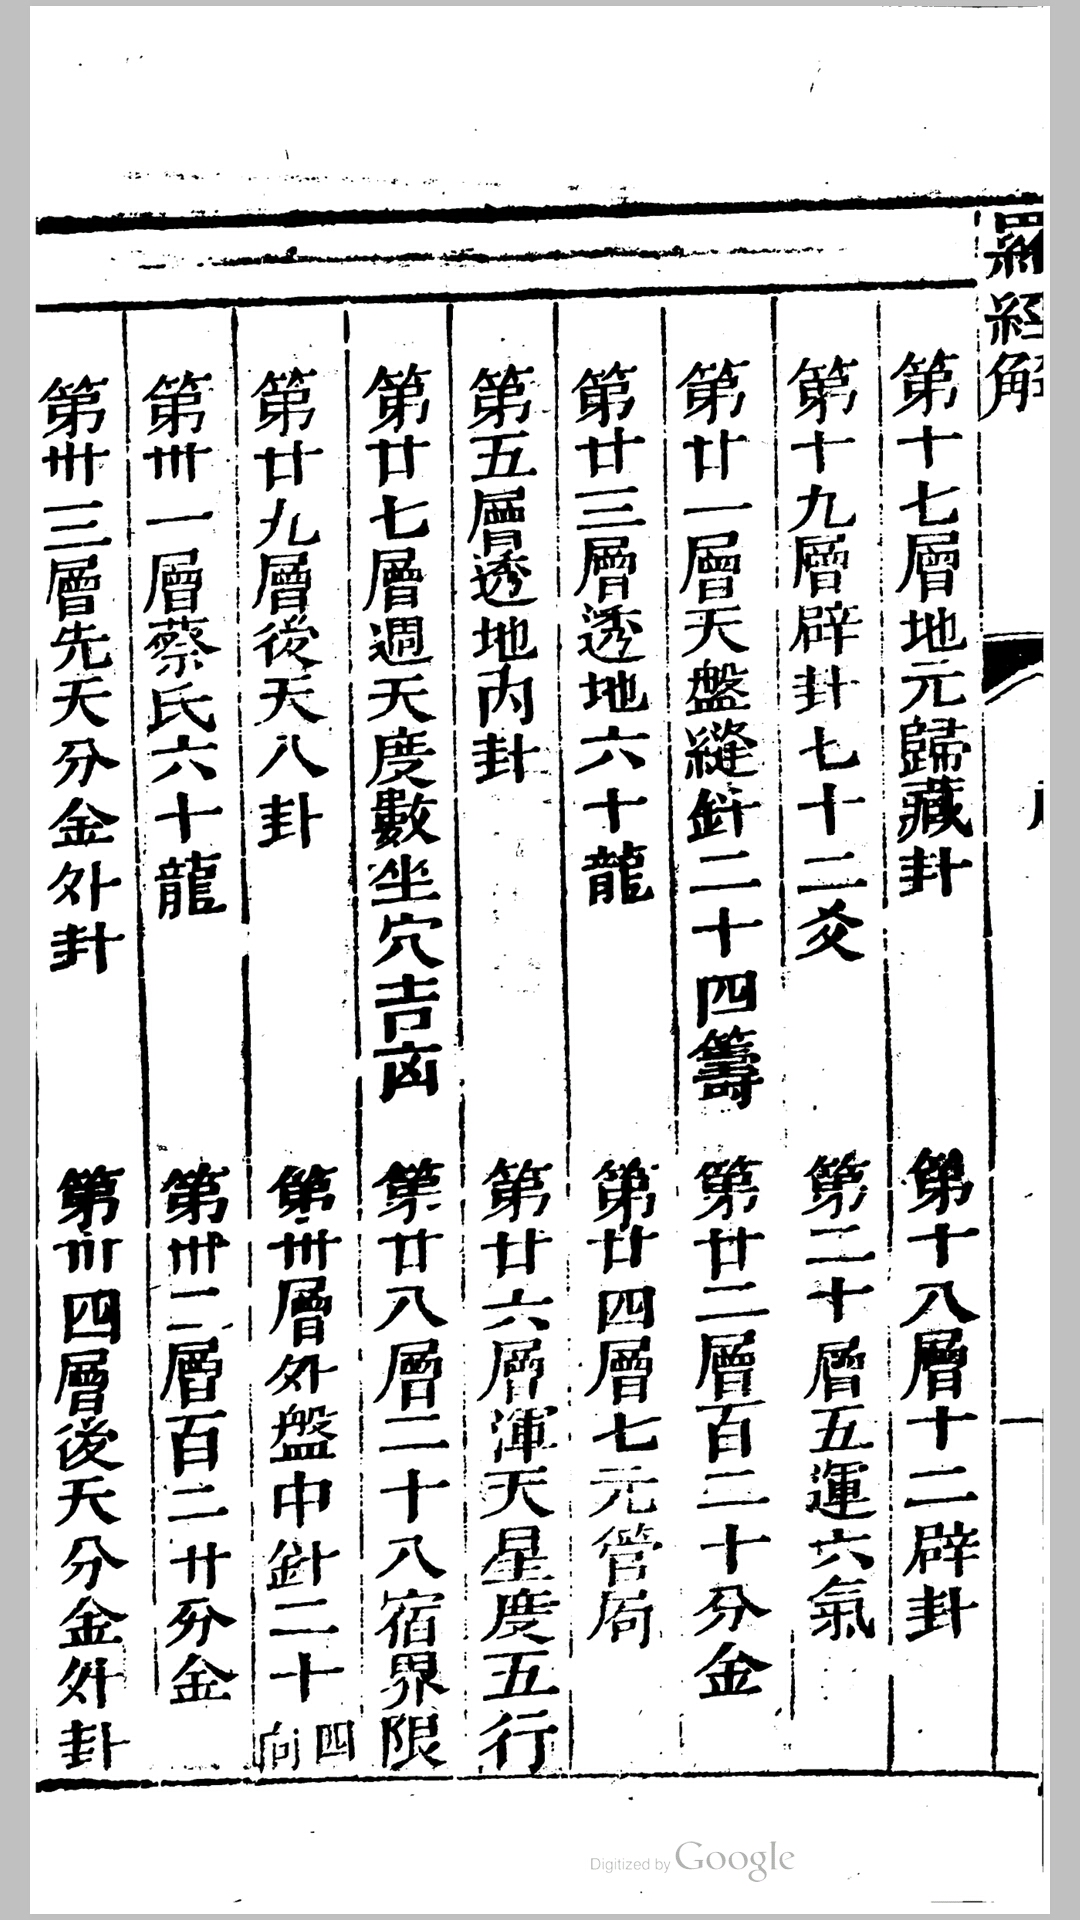 羅經解
第十七層地元歸藏卦 第十八層十二辟卦
第十九層辟卦七十二爻 第二十層五運六氣
第廿一層天盤縫針二十四籌 第廿二層百二十分金
第廿三層透地六十龍 第廿四層七元管局
第五層透地內卦 第廿六層渾天星度五行
第廿七層週天度數坐穴吉凶 第廿八層二十八宿界限
第廿九層後天八卦 第卅層外盤中針二十四向
第卅一層蔡氏六十龍 第卅二層百二廿分金
第卅三層先天分金外卦 第卅四層後天分金外卦
Digitized by Google